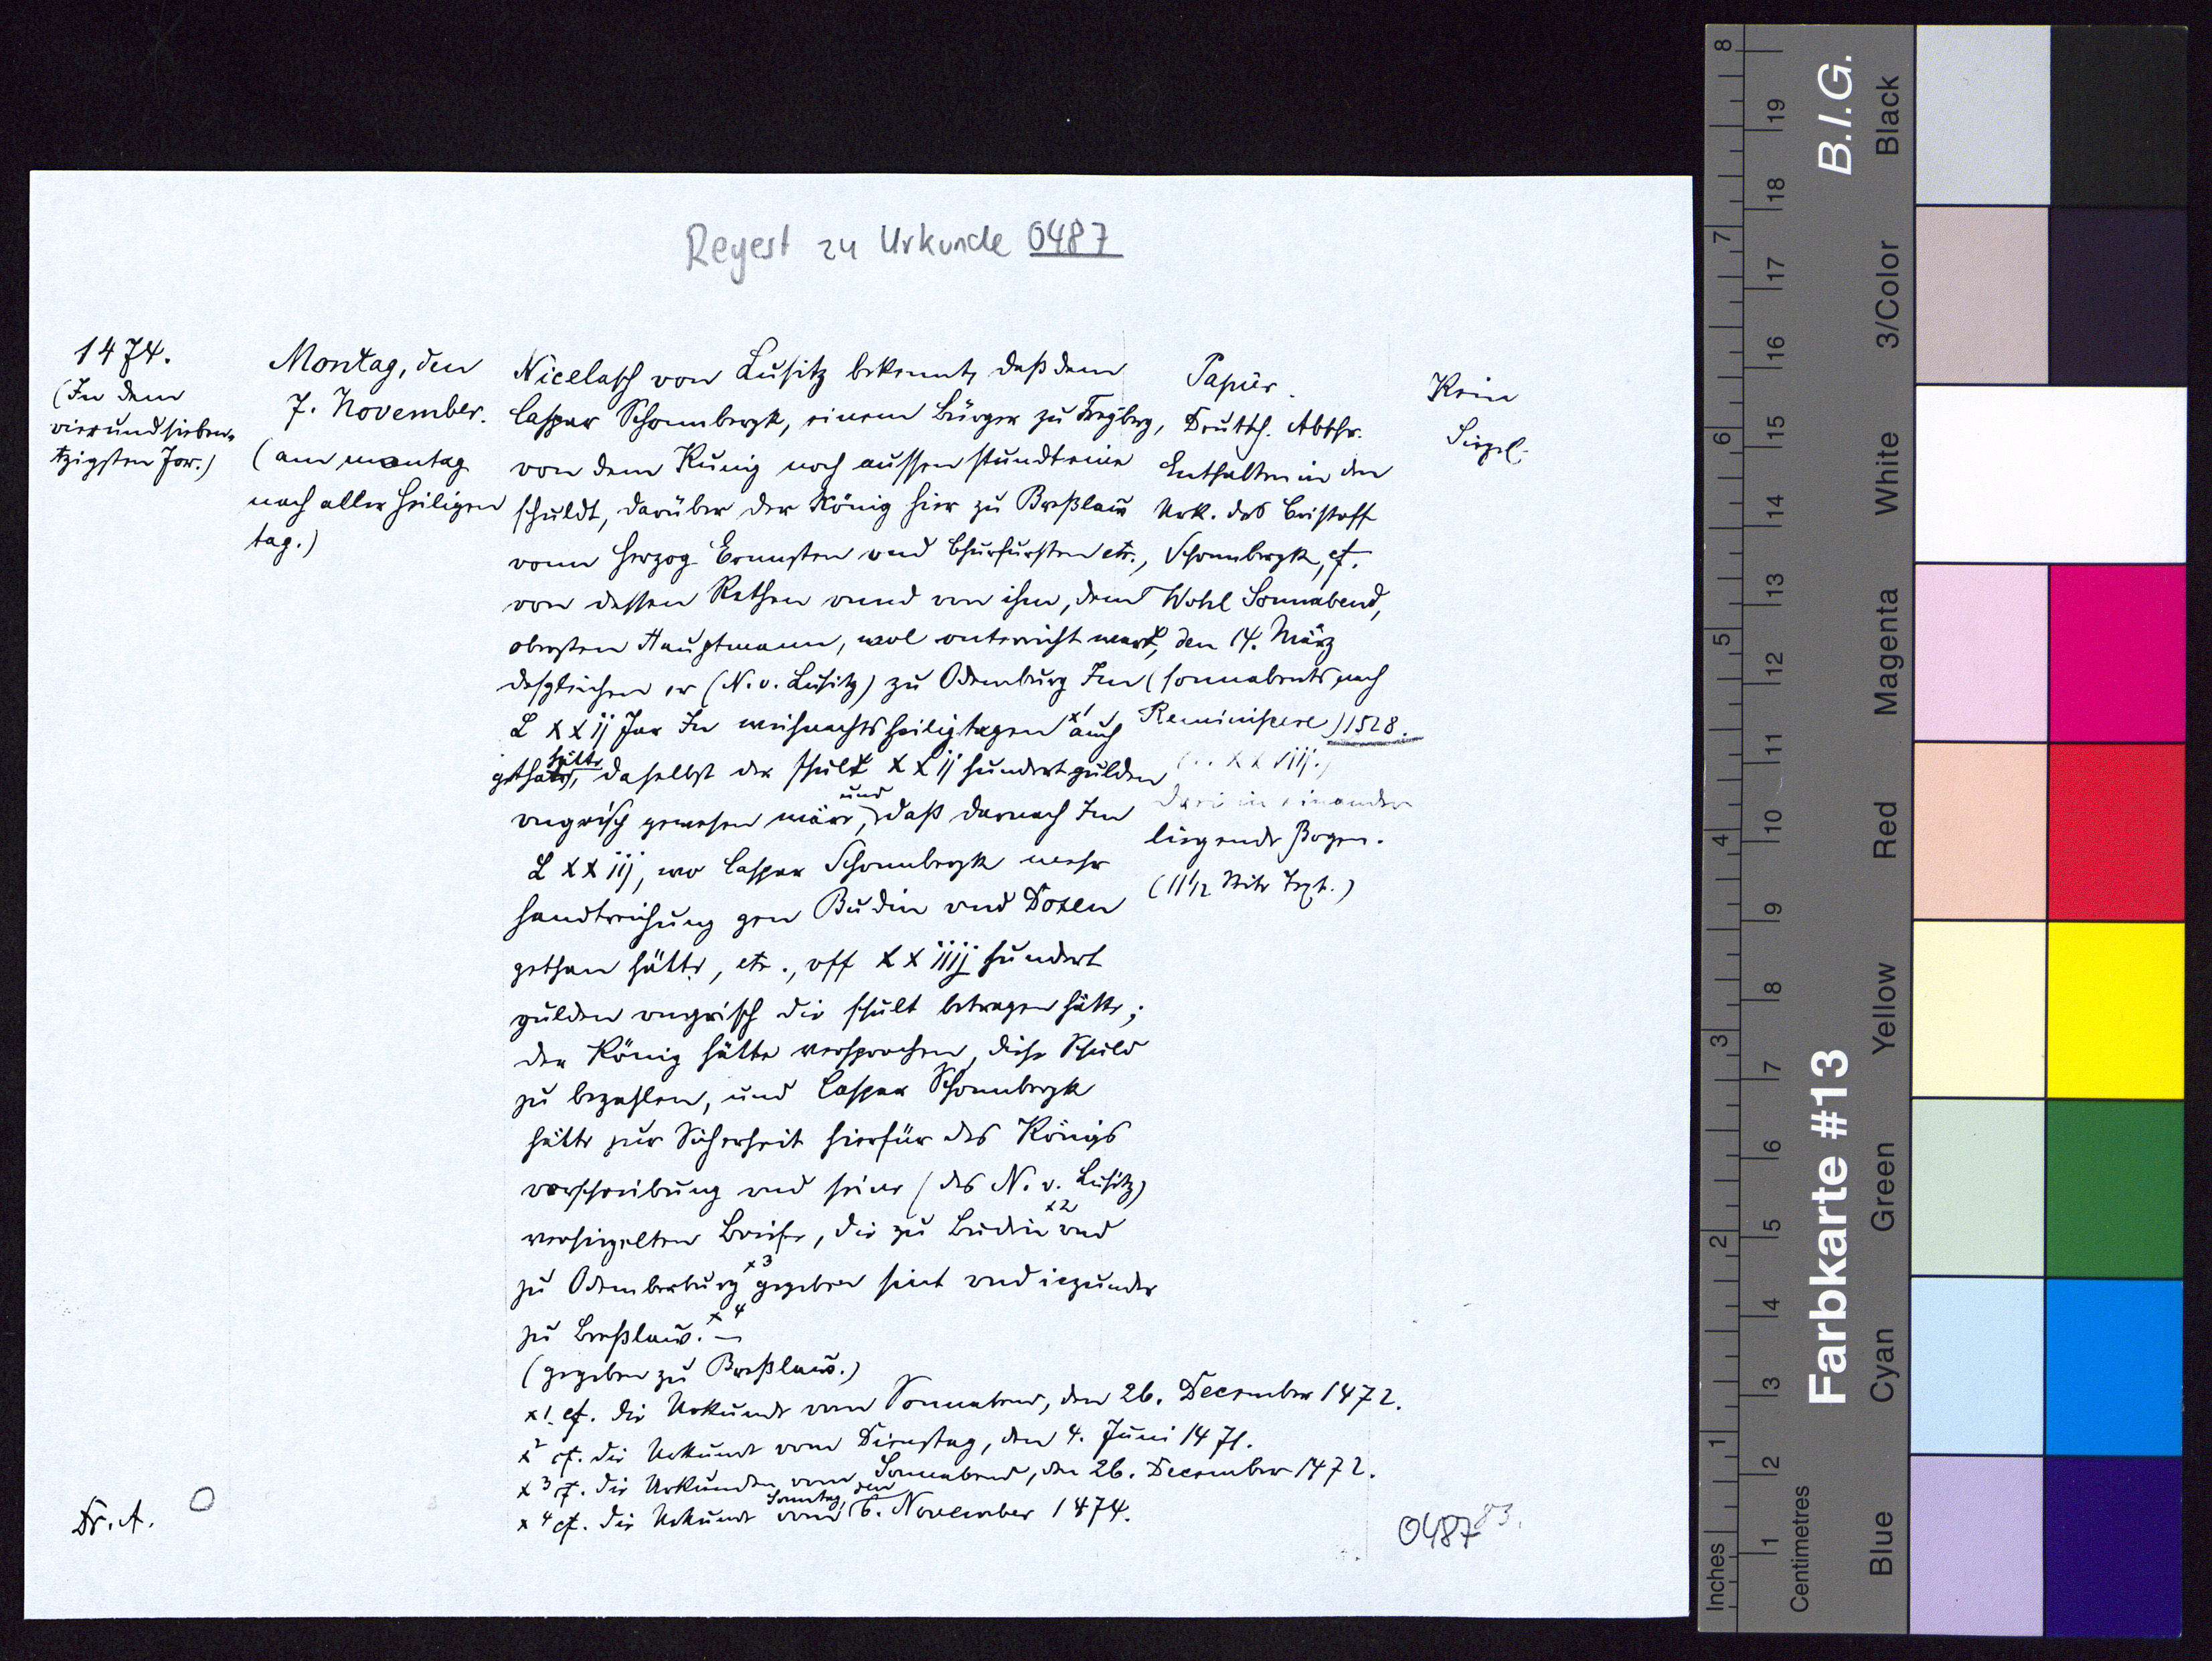 Regest zu Urkunde 0487
1474.
(In dem
vierundsieben-
tzigsten Jar.)
Montag, den
7. November.
(am montag
nach aller heiligen
tag.)
Nicelasch von Lusitz bekennt, daß dem
Caspar Schonnbergk, einem Bürger zu Freyberg,
von dem Kunig noch aussen stundt eine
schuldt, darüber der König hier zu Breßlaw
vonn herzog Ernnsten vnd Churfursten etc.,
von dessen Rethen vnnd von ihm, dem
obersten Hauptmann, wol vnterricht wart,
desgleichen er (N. v. Lusitz) zu Odemburg Im
L x x ij Jar In weihnachts heiligtagen x1 auch
gethan hätte, daselbst der schult x x ij hundert gulden
vngrisch gewesen wäre, und daß darnach Im
L x x iij, wo Caspar Schonnbergk mehr
handtreichung gen Budin vnd Doten
gethan hätte, etc., vff x x iiij hundert
gulden vngrisch die schult betragen hätte;
der König hätte versprochen, diese Schuld
zu bezahlen, und Caspar Schonnbergk
hätte zur Sicherheit hierfür des Königs
verschreibung vnd seine (des N. v. Lusitz)
versiegelten Briefe, die zu Budin x2 vnd
zu Odemberburg x3 gegeben sint vnd iezunder
zu Breßlaw. x4 —
(gegeben zu Breßlaw.)
x1. cf. die Urkunde vom Sonnabend, den 26. December 1472.
x2 cf. die Urkunde vom Dienstag, den 4. Juni 1471.
x3 cf. die Urkunden vom Sonnabend, den 26. December 1472.
x4 cf. die Urkunde vom Sonntag, den 6. November 1474.
Papier.
Deutsch. Abschr.
Enthalten in der
Urk. des Cristoff
Schonnbergk, cf.
Wohl Sonnabend,
den 14. März
(sonnabents nach
Reminiscere) 1528.
x x viij.)
Drei in einander
liegende Bogen.
(11 1/2 Seite Text.)
Kein
Siegel.
Dr. A.
0
0487
83.
8
7
6
5
4
3
2
1
Inches
19
18
17
16
15
14
13
12
11
10
9
8
7
6
5
4
3
2
1
Centimetres
B.I.G.
Farbkarte #13
Black
3/Color
White
Magenta
Red
Yellow
Green
Cyan
Blue